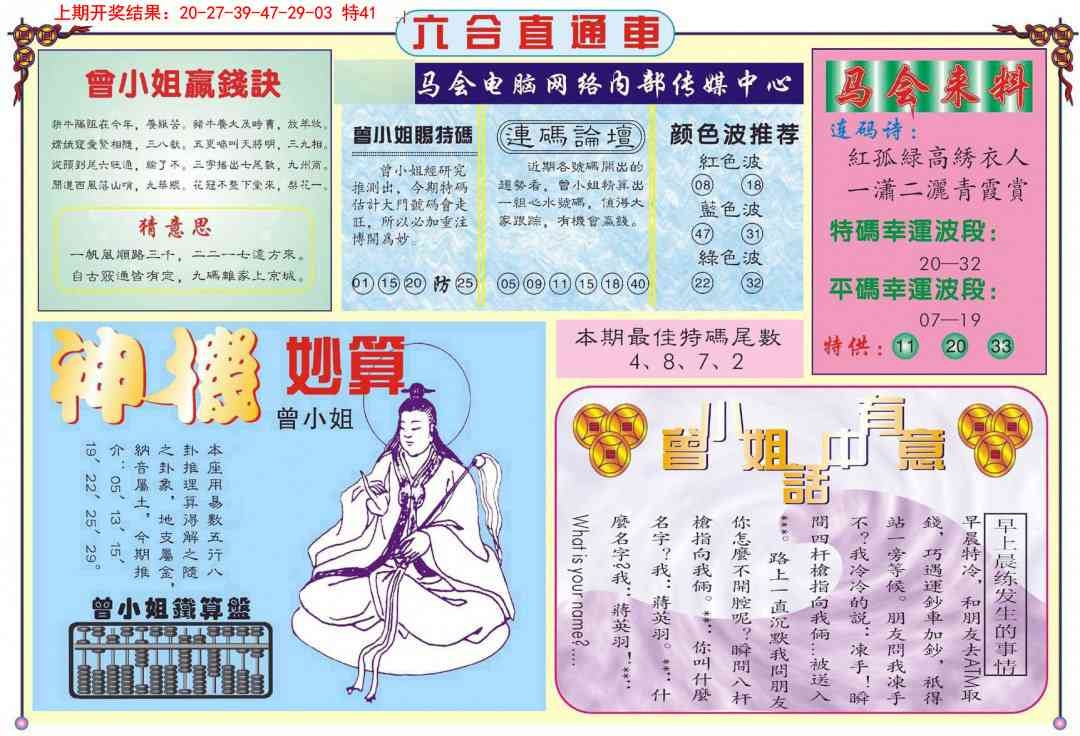 上期开奖结果：20-27-39-47-29-03 特41
六合直通車
马会电脑网络内部传媒中心
曾小姐贏錢訣
猜意思
一帆風順路三千，二二一七遠方來。
自古窮通皆有定，九碼離家上京城。
曾小姐賜特碼
曾小姐經研究
推測出，今期特碼
估計大門號碼會走
旺，所以必加重注
博開為妙。
01 15 20 防 25
連碼論壇
近期各號碼開出的
趨勢看，曾小姐精算出
一組心水號碼，值得大
家跟踪，有機會贏錢。
05 09 11 15 18 40
颜色波推荐
紅色波
08 18
藍色波
47 31
綠色波
22 32
马会来料
连码诗：
紅孤緑高綉衣人
一瀟二灑青霞賞
特碼幸運波段：
20—32
平碼幸運波段：
07—19
特供：11 20 33
本期最佳特碼尾數
4、8、7、2
神機妙算
曾小姐
本座用易數五行八
卦推理算得解之隨
之卦象，地支屬金，
納音屬土，今期推
介：05、13、15、
19、22、25、29。
曾小姐鐵算盤
曾小姐話中有意
早上晨练发生的事情
早晨特冷，和朋友去ATM取
錢，巧遇運鈔車加鈔，祇得
站一旁等候。朋友問我凍手
不？我冷冷的説：凍手！瞬
間四杆槍指向我倆…被送入
***。路上一直沉默我問朋友
你怎麼不開腔呢？瞬間八杆
槍指向我倆。**：你叫什麼
名字？我：蔣英羽。**：什
麼名字?我：蔣英羽！**：
What is your name?....